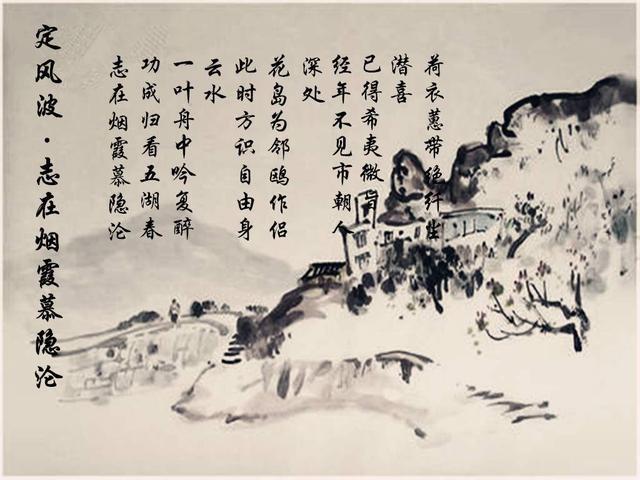 定风波·志在烟霞慕隐沦
志在烟霞慕隐沦
功成归看五湖春
一叶舟中吟复醉
云水
此时方识自由身
花岛为邻鸥作侣
深处
经年不见市朝人
已得希夷微
潜喜
荷衣蕙带绝纤尘